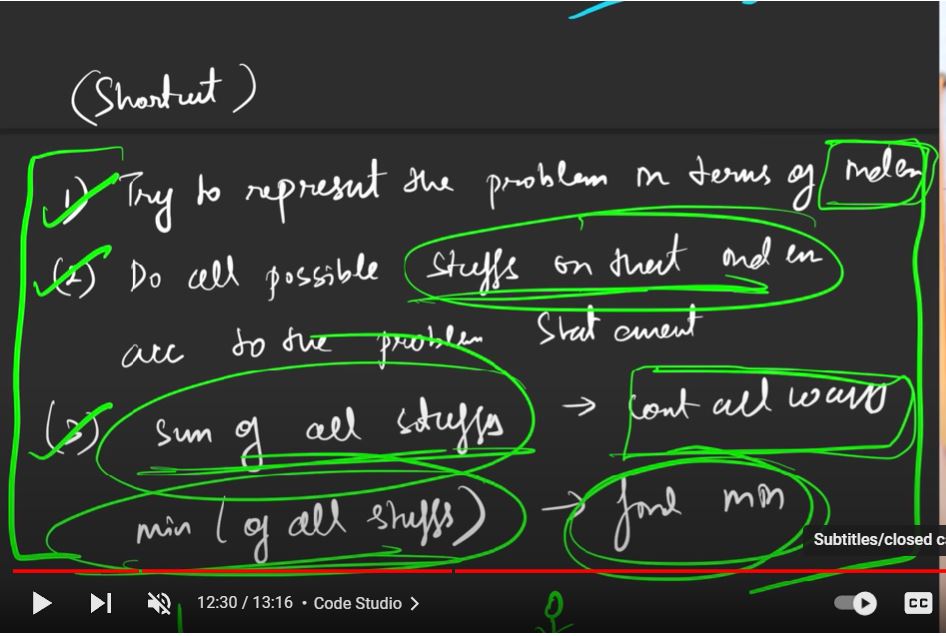 (Shortcut)
1) Try to represent the problem in terms of index
(2) Do all possible stuffs on that index
acc to the problem Statement
(3) sum of all stuffs → Count all ways
min (of all stuffs) → find min
Subtitles/closed c
12:30 / 13:16 • Code Studio >
CC